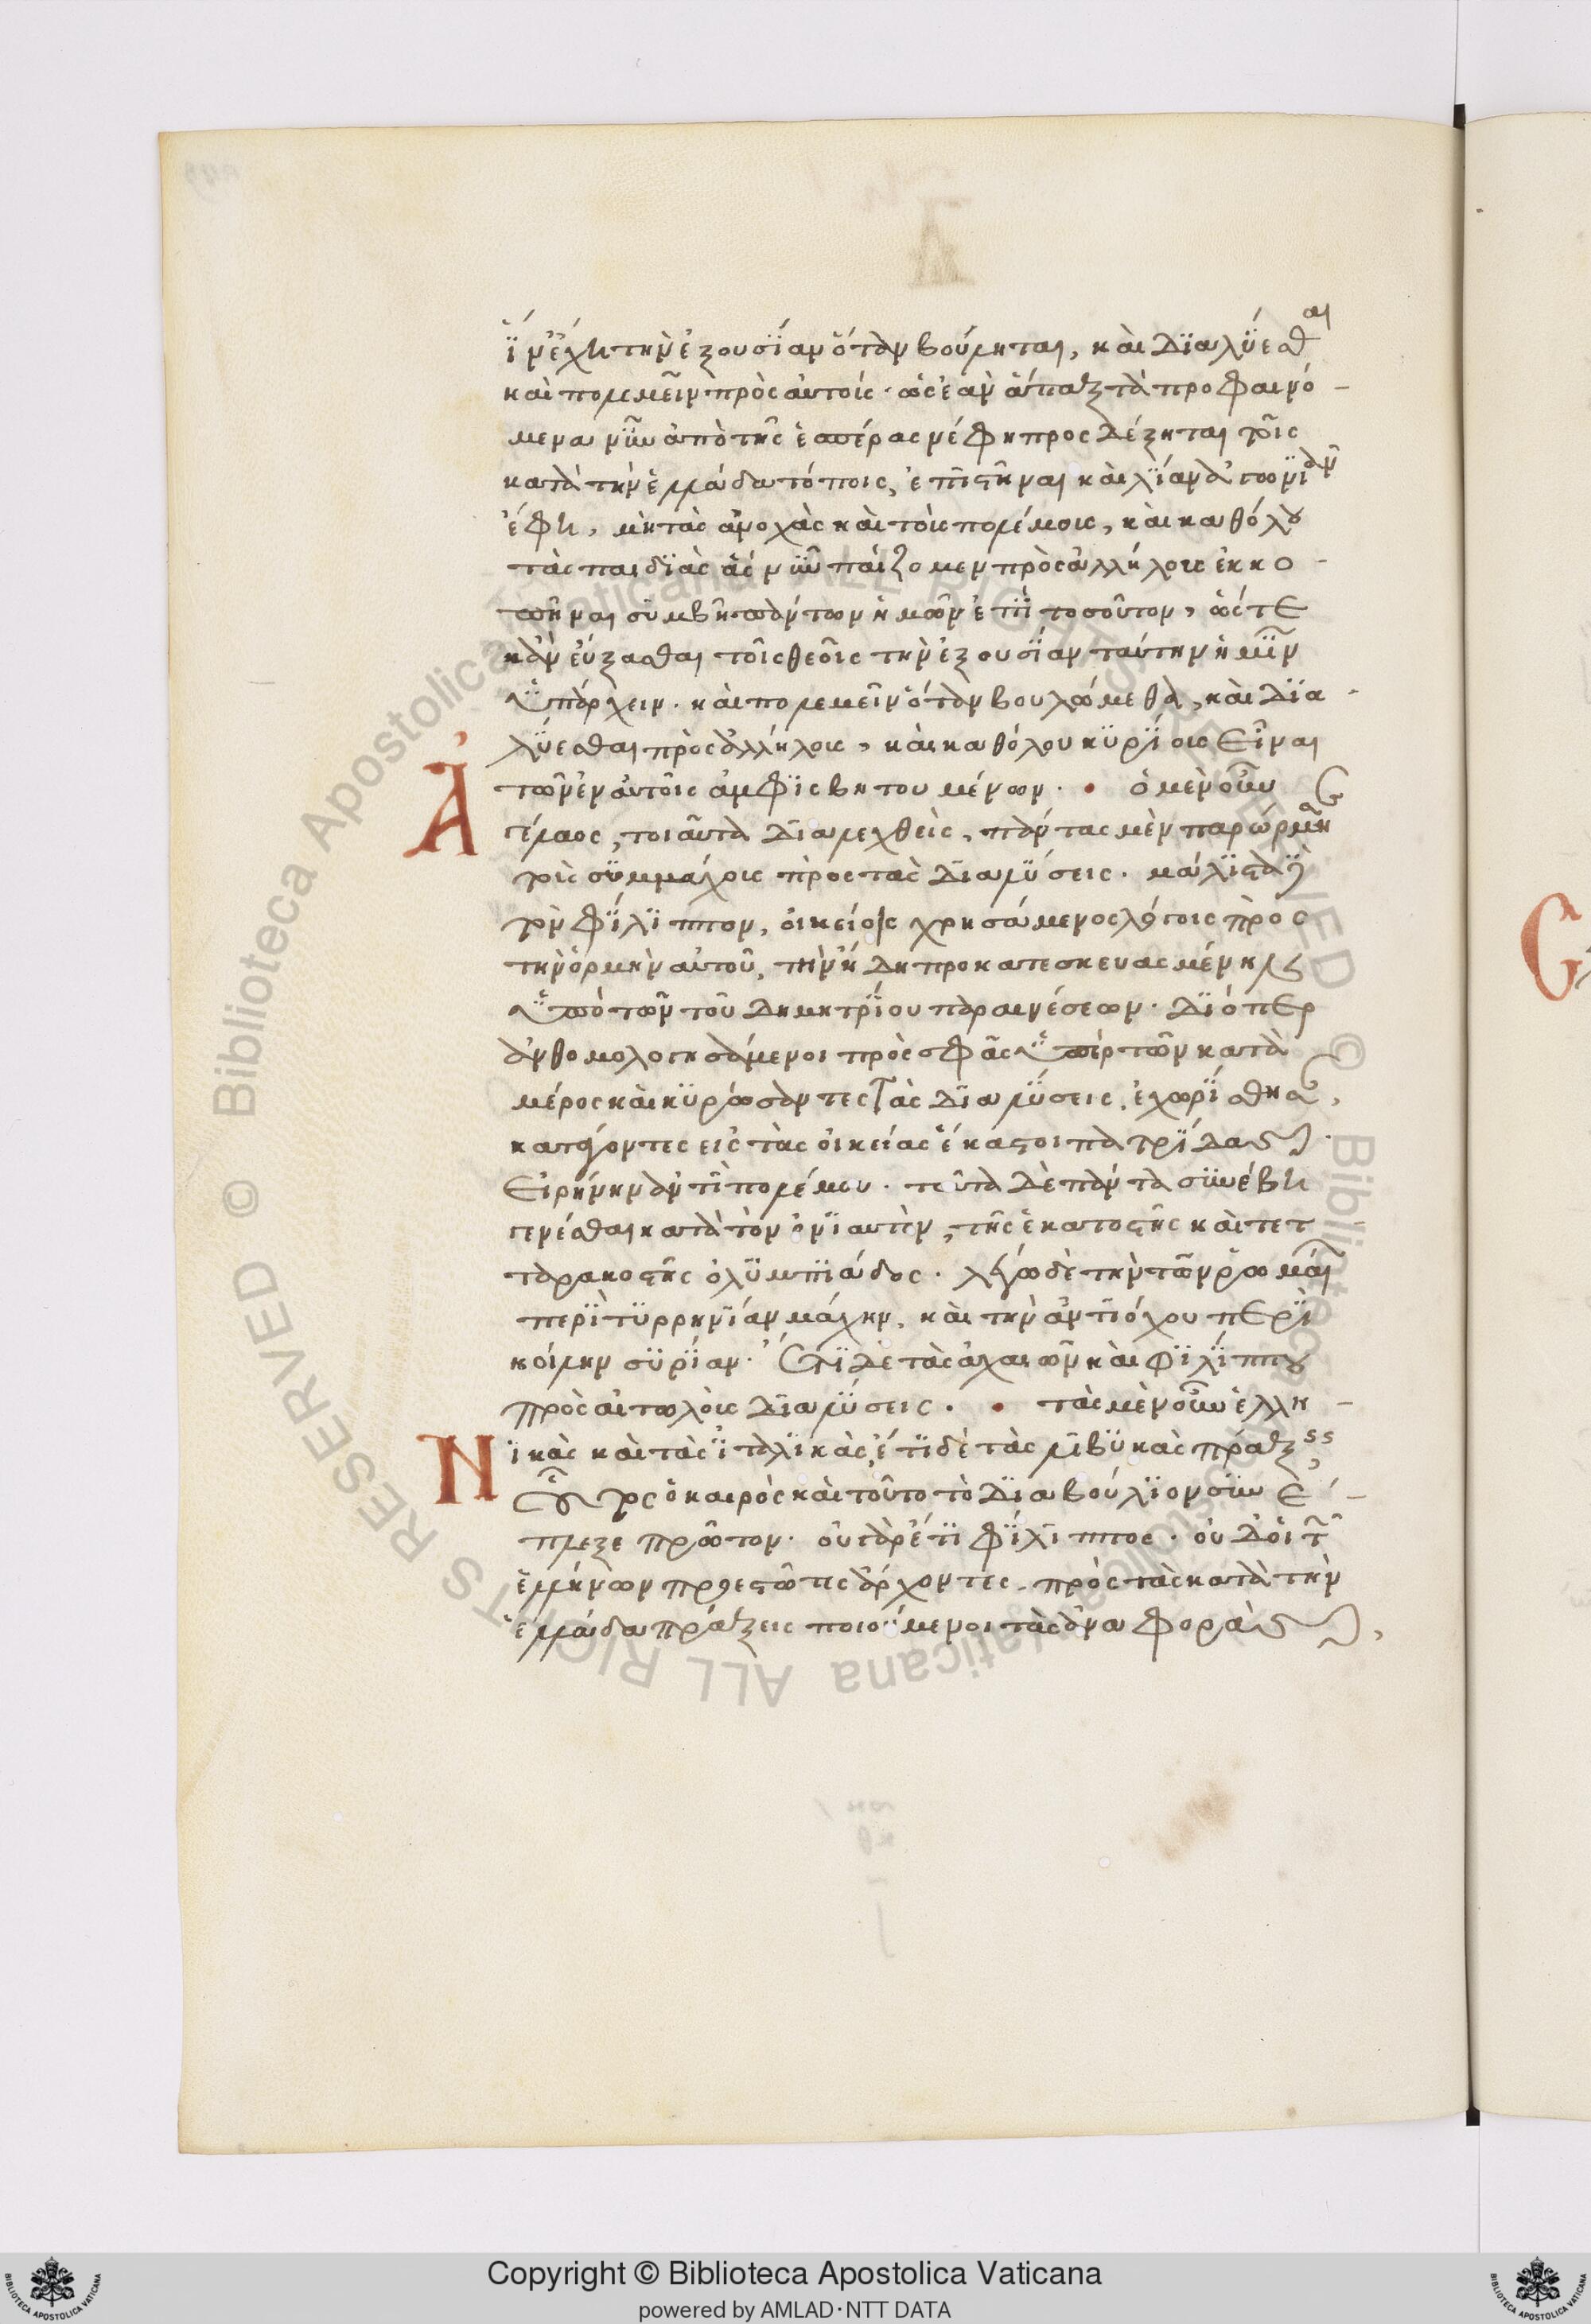 ἵν' ἔχῃ τὴν ἐξουσίαν ὅταν βούληται, καὶ διαλύεσθαι
καὶ πολεμεῖν πρὸς αὐτούς· ὡς ἐὰν ἅπαξ τὰ προφαινό-
μενα νῦν ἀπὸ τῆς ἑσπέρας νέφη προσδέξηται τοῖς
κατὰ τὴν ἑλλάδα τόποις, ἐπιστῆναι καὶ λίαν ἀγωνιᾶν
ἔφη, μὴ τὰς ἀνοχὰς καὶ τοὺς πολέμους, καὶ καθόλου
τὰς παιδιὰς ἃς νῦν παίζομεν πρὸς ἀλλήλους ἐκκο-
πῆναι συμβῇ πάντων ἡμῶν ἐπὶ τοσοῦτον, ὥστε
κἂν εὔξασθαι τοῖς θεοῖς τὴν ἐξουσίαν ταύτην ἡμῖν
ὑπάρχειν· καὶ πολεμεῖν ὅταν βουλώμεθα, καὶ δια-
λύεσθαι πρὸς ἀλλήλους, καὶ καθόλου κυρίους εἶναι
τῶν ἐν αὐτοῖς ἀμφισβητουμένων· ὁ μὲν οὖν
Ἀγέλαος, τοιαῦτα διαλεχθεὶς, πάντας μὲν παρώρμησε
τοὺς συμμάχους πρὸς τὰς διαλύσεις· μάλιστα δὲ
τὸν φίλιππον, οἰκείοις χρησάμενος λόγοις πρὸς
τὴν ὁρμὴν αὐτοῦ, τὴν ἤδη προκατεσκευασμένην
ὑπὸ τῶν τοῦ δημητρίου παραινέσεων· διόπερ
ἀνθομολογησάμενοι πρὸς σφᾶς ὑπὲρ τῶν κατὰ
μέρος καὶ κυρώσαντες τὰς διαλύσεις, ἐχωρίσθησαν,
κατάγοντες εἰς τὰς οἰκείας ἕκαστοι πατρίδας
εἰρήνην ἀντὶ πολέμου· ταῦτα δὲ πάντα συνέβη
γενέσθαι κατὰ τὸν ἐνιαυτὸν, τῆς ἑκατοστῆς καὶ τετ-
ταρακοστῆς ὀλυμπιάδος· λέγω δὲ τὴν τῶν ῥωμαίων
περὶ τυρρηνίαν μάχην, καὶ τὴν ἀντιόχου περὶ
κοίλην συρίαν· ἔτι δὲ τὰς ἀχαιῶν καὶ φιλίππου
πρὸς αἰτωλοὺς διαλύσεις· τὰς μὲν οὖν ἑλλη-
Νικὰς καὶ τὰς ἰταλικὰς, ἔτι δὲ τὰς λιβυκὰς πράξεις,
οὗτος ὁ καιρὸς καὶ τοῦτο τὸ διαβούλιον συνέ-
πλεξε πρῶτον· οὐ γὰρ ἔτι φίλιππος· οὐδ' οἱ τῶν
ἑλλήνων προεστῶτες ἄρχοντες, πρὸς τὰς κατὰ τὴν
ἑλλάδα πράξεις ποιούμενοι τὰς ἀναφορὰς,
Copyright © Biblioteca Apostolica Vaticana
powered by AMLAD·NTT DATA